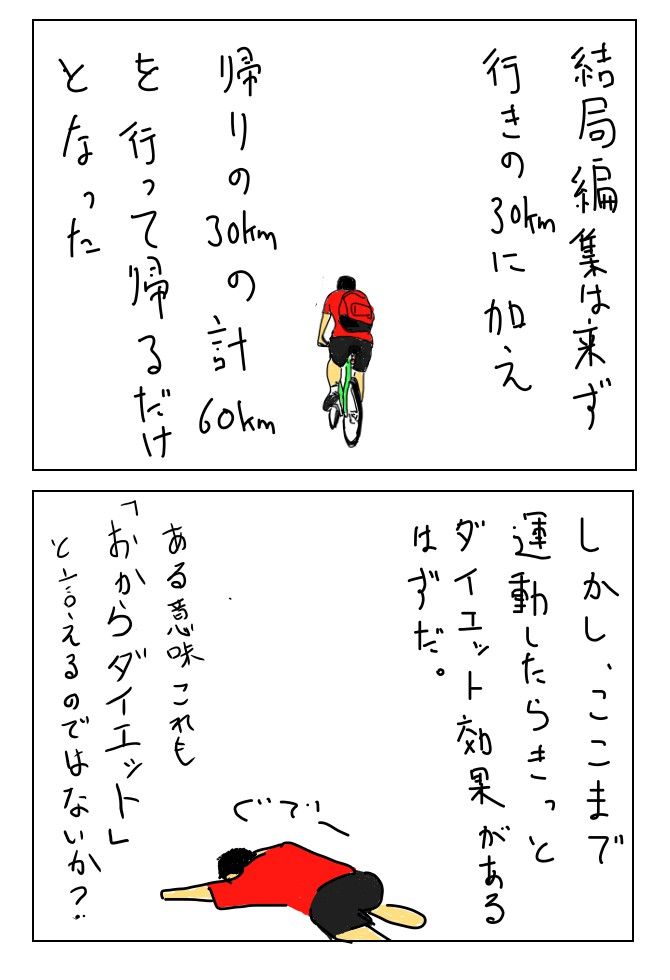 結局編集は来ず
行きの30kmに加え
帰りの30kmの計60km
を行って帰るだけ
となった
しかし、ここまで
運動したらきっと
ダイエット効果がある
はずだ。
ぐでー
ある意味これも
「おからダイエット」
と言えるのではないか?